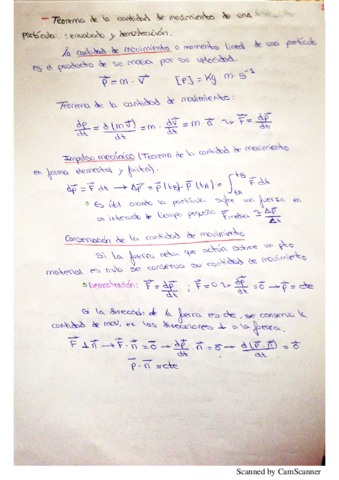 - Teorema de la cantidad de movimientos de una
partícula: enunciado y demostración.
La cantidad de movimiento o momento lineal de una partícula
es el producto de su masa por su velocidad.
p⃗ = m · v⃗    [p] = Kg m · s⁻¹
Teorema de la cantidad de movimiento:
dp⃗/dt = d(m v⃗)/dt = m · dv⃗/dt = m · a⃗ ⤳ F⃗ = dp⃗/dt
Impulso mecánico (Teorema de la cantidad de movimiento
en forma elemental y finita).
dp⃗ = F⃗ dt → Δp⃗ = p⃗(tB) - p⃗(tA) = ∫tA tB F⃗ dt
Es útil cuando la partícula sufre una fuerza en
un intervalo de tiempo pequeño F⃗media ≅ Δp⃗/Δt
Conservación de la cantidad de movimiento
Si la fuerza neta que actúa sobre un pto
material es nula se conserva su cantidad de movimiento
Demostración: F⃗ = dp⃗/dt ; F⃗ = 0 ⤳ dp⃗/dt = 0⃗ → p⃗ = cte
Si la dirección de la fuerza es cte, se conserva la
cantidad de mov. en las direcciones ⊥ a la fuerza.
F⃗ ⊥ n⃗ → F⃗ · n⃗ = 0⃗ → dp⃗/dt · n⃗ = 0⃗ → d(p⃗ · n⃗)/dt = 0⃗
p⃗ · n⃗ = cte
Scanned by CamScanner